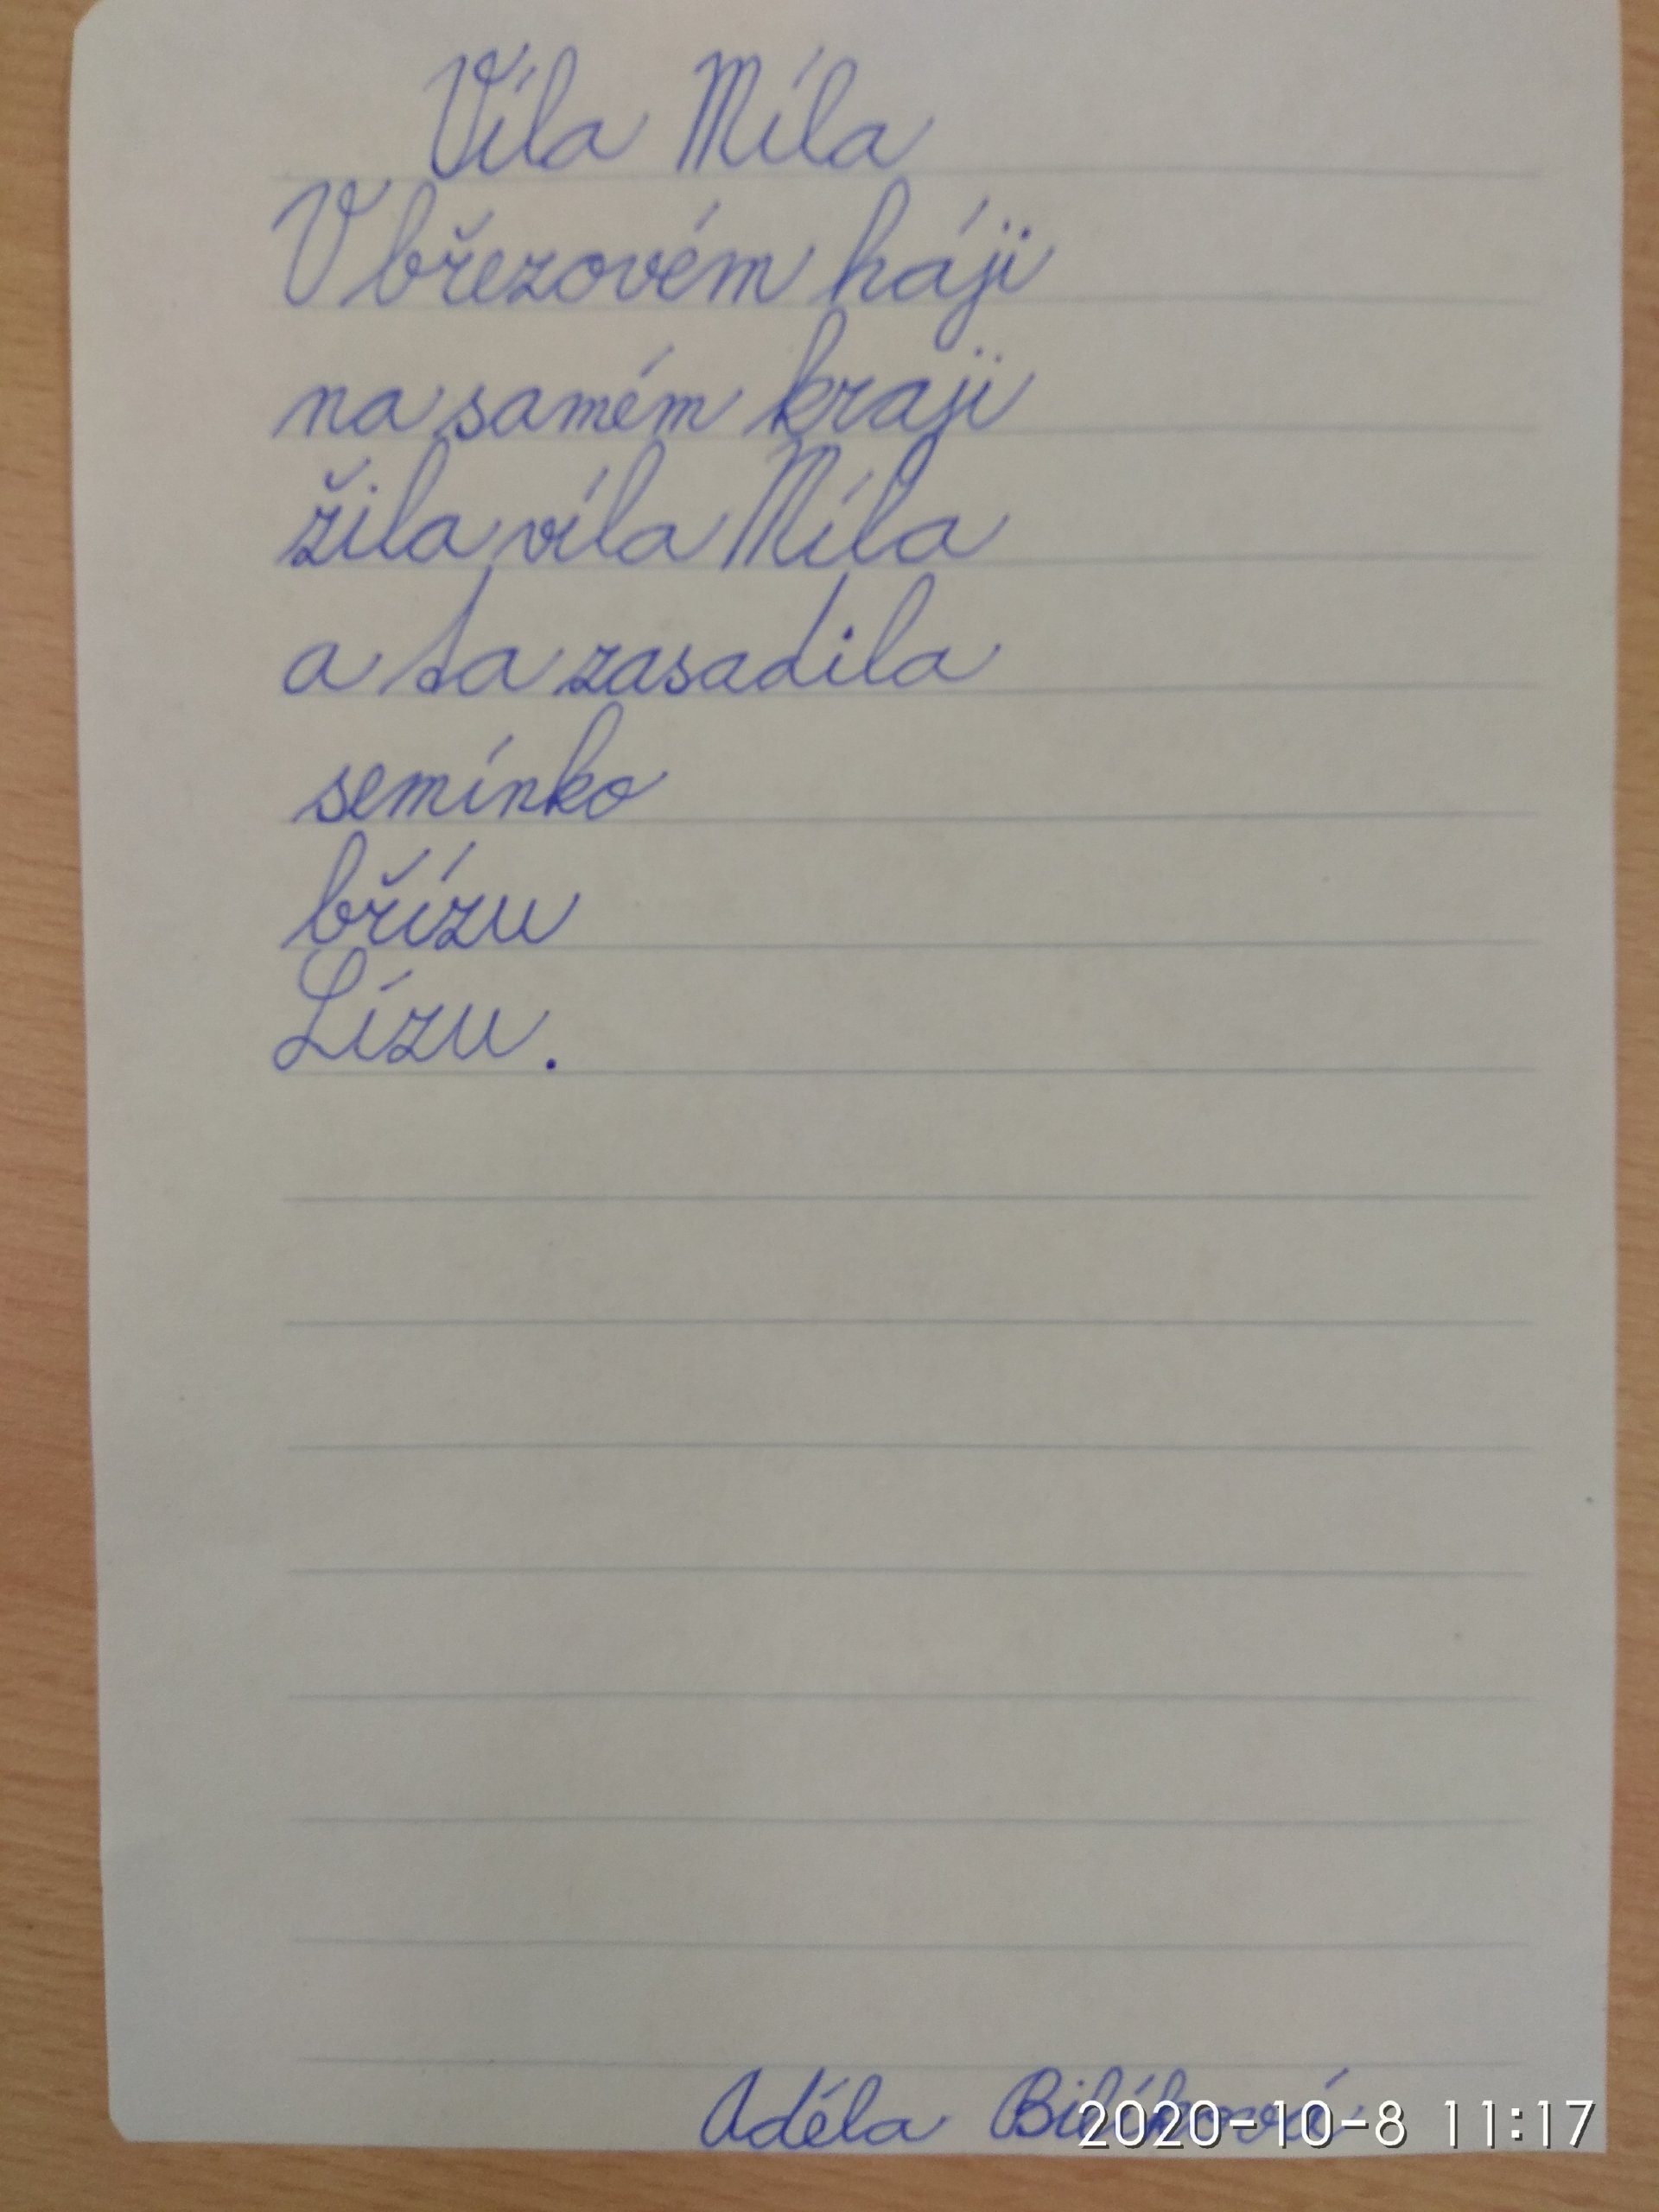 Víla Míla
V březovém háji
na samém kraji
žila víla Míla
a ta zasadila
semínko
břízu
Lízu.
Adéla
2020-10-8 11:17